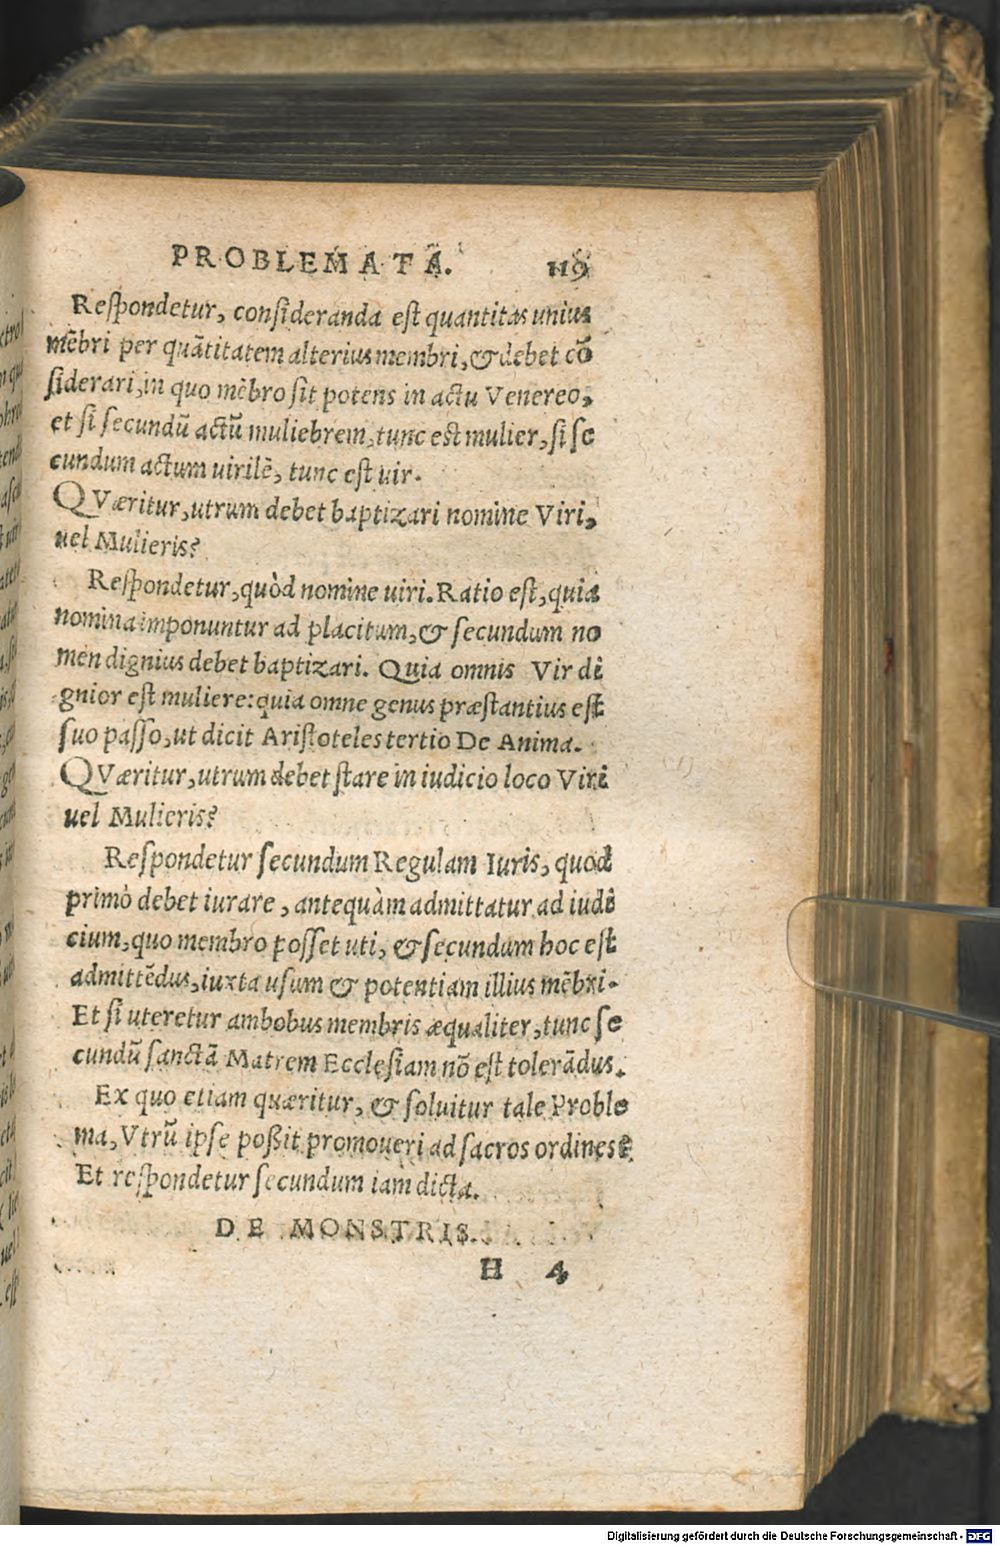 PROBLEMATA. 119
Respondetur, consideranda est quantitas unius
mēbri per quātitatem alterius membri, & debet cō
siderari, in quo mēbro sit potens in actu Venereo,
et si secundū actū muliebrem, tunc est mulier, si se
cundum actum uirilē, tunc est uir.
QVæritur, utrum debet baptizari nomine Viri,
uel Mulieris?
Respondetur, quòd nomine uiri. Ratio est, quia
nomina imponuntur ad placitum, & secundum no
men dignius debet baptizari. Quia omnis Vir di
gnior est muliere: quia omne genus præstantius est
suo passo, ut dicit Aristoteles tertio De Anima.
QVæritur, utrum debet stare in iudicio loco Viri
uel Mulieris?
Respondetur secundum Regulam Iuris, quod
primò debet iurare, antequàm admittatur ad iudi
cium, quo membro posset uti, & secundum hoc est
admittēdus, iuxta usum & potentiam illius mēbri.
Et si uteretur ambobus membris æqualiter, tunc se
cundū sanctā Matrem Ecclesiam nō est tolerādus.
Ex quo etiam quæritur, & soluitur tale Proble
ma, Vtrū ipse poßit promoueri ad sacros ordines?
Et respondetur secundum iam dicta.
DE MONSTRIS.
H 4
Digitalisierung gefördert durch die Deutsche Forschungsgemeinschaft - DFG